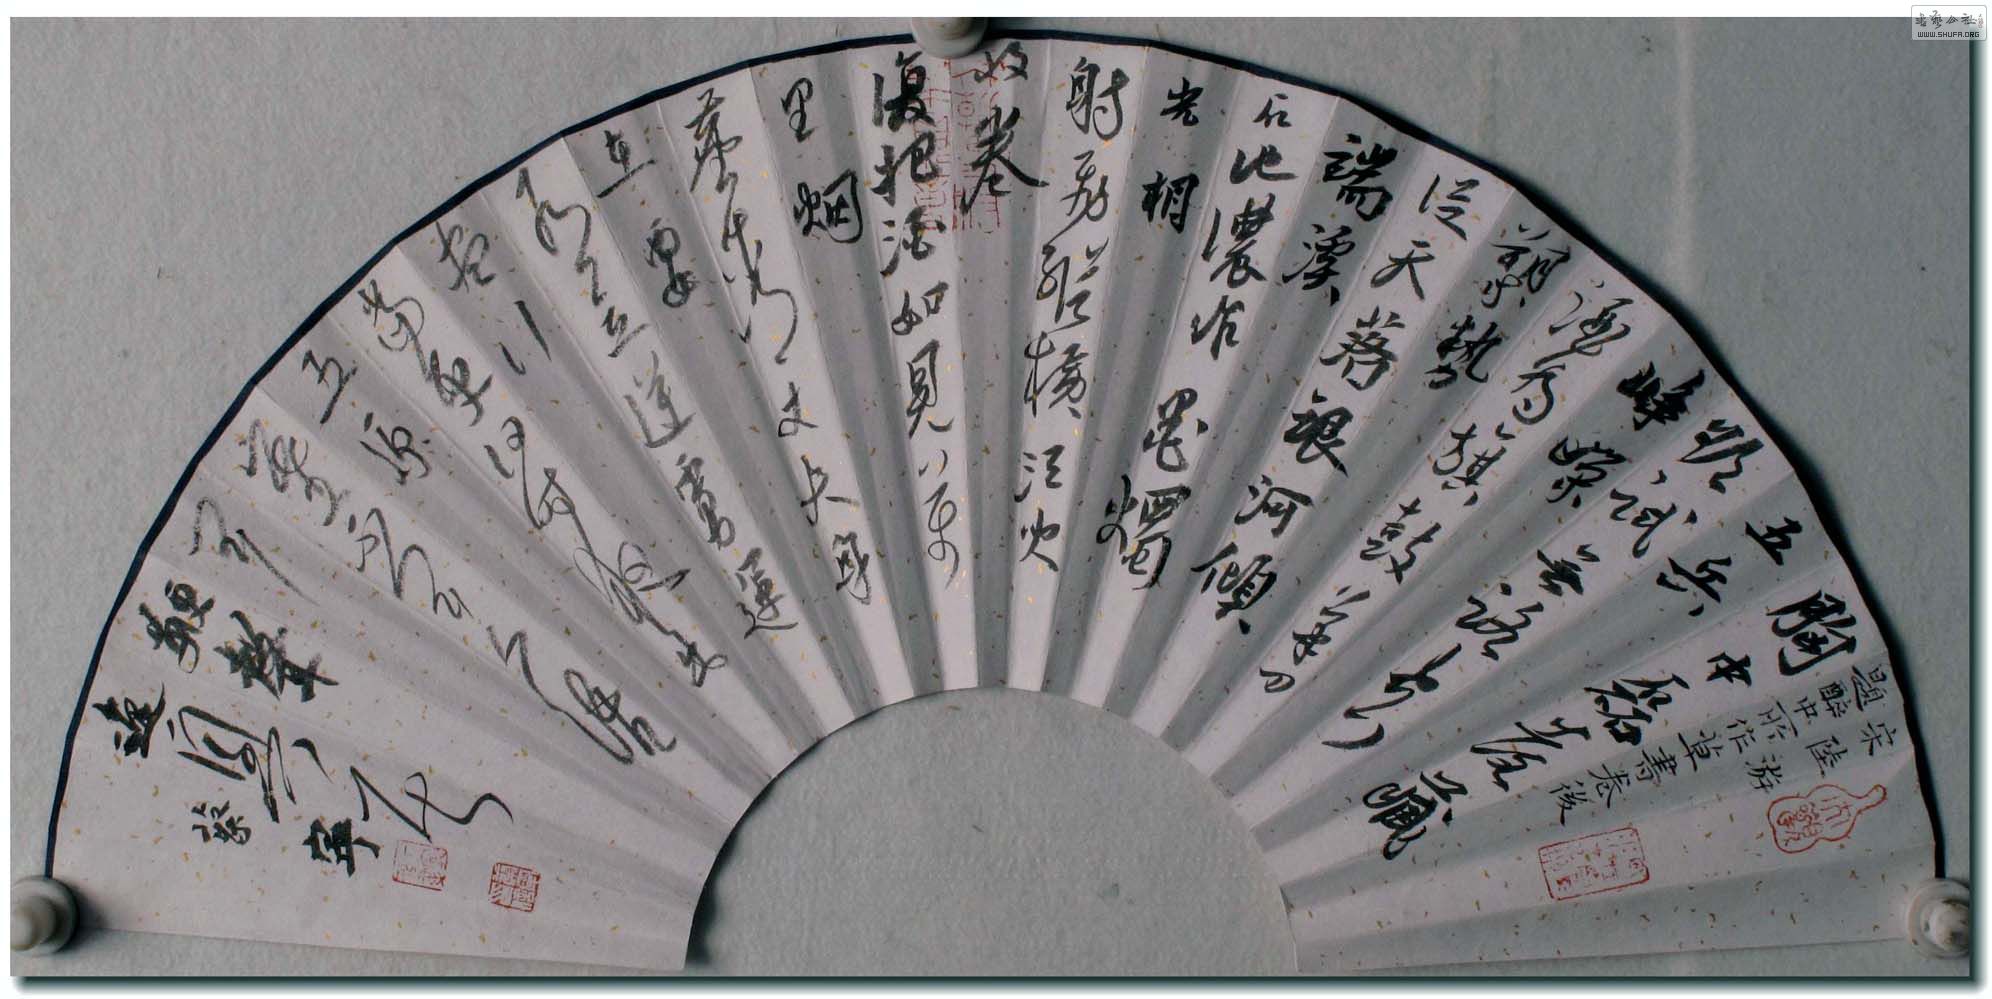 宋陸游
題醉中所作草書卷後
胸中磊落藏
五兵
欲試無路空
峥嶸
酒為旗鼓筆刀
槊勢
從天落銀河傾
端溪
石池濃作墨燭
光相
射飛縱橫須臾
收卷
復把酒如見萬
里烟
塵清丈夫身
在要
有立逆虜運
盡行
當平何時夜出
五原
塞不聞人語
聞
鞭聲